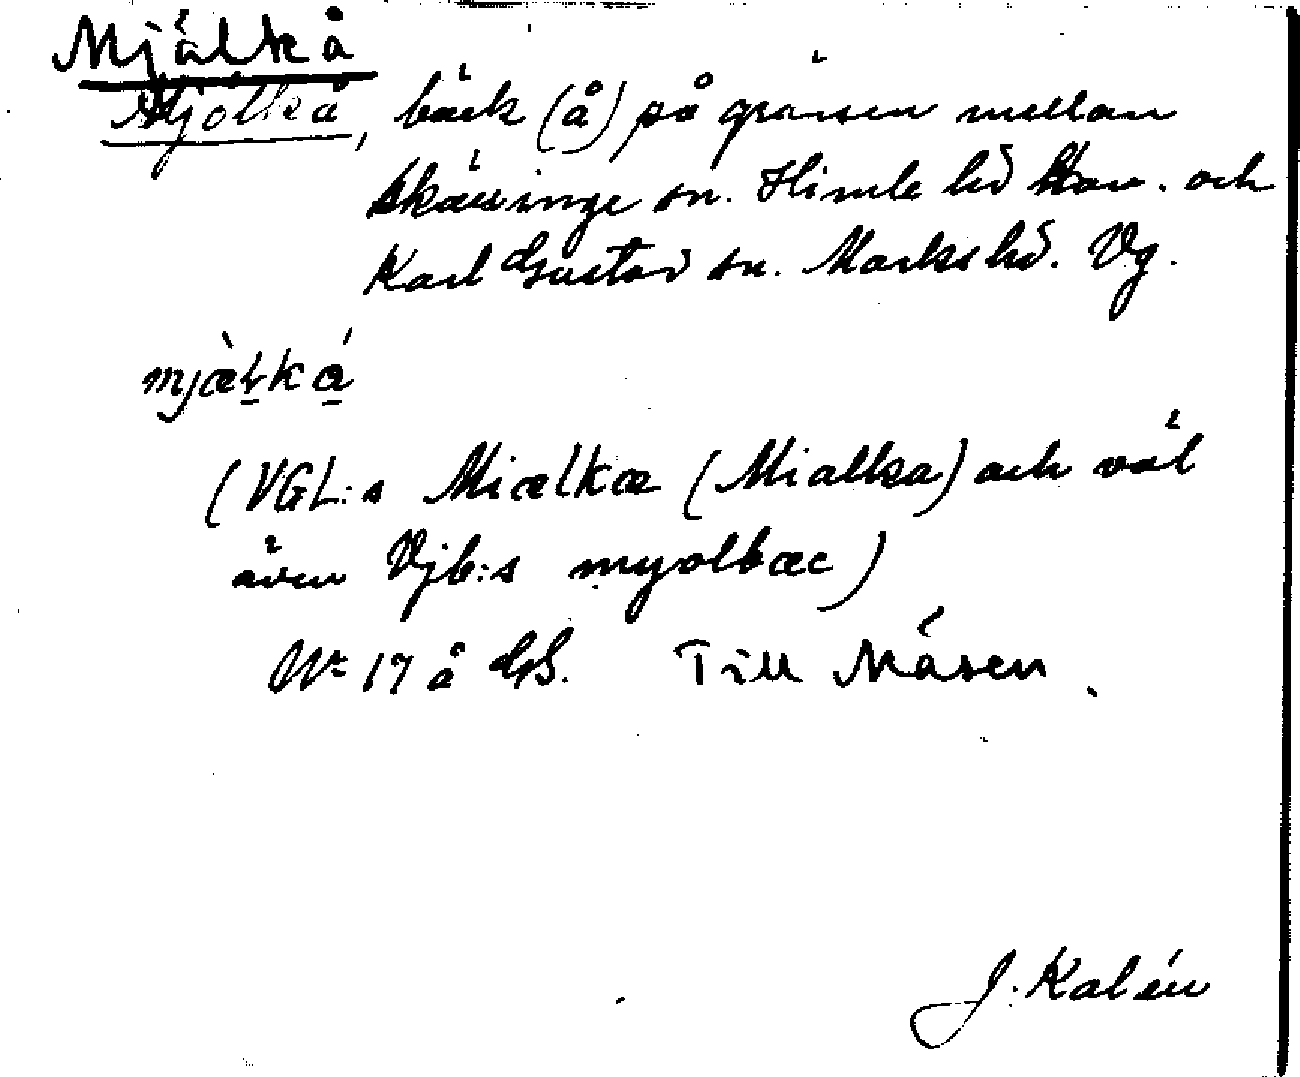 Mjälkå
Mjölkå, bäck (å) på gränsen mellan
Skällinge sn. Himle hd Han. och
Karl Gustav sn. Marks hd. Vg.
mjæ̀lká̱
(VGL:s Miælkæ (Mialka) och väl
även Vjb:s myolkæc)
Nr 17 å GS. Till Måsen.
J. Kalén